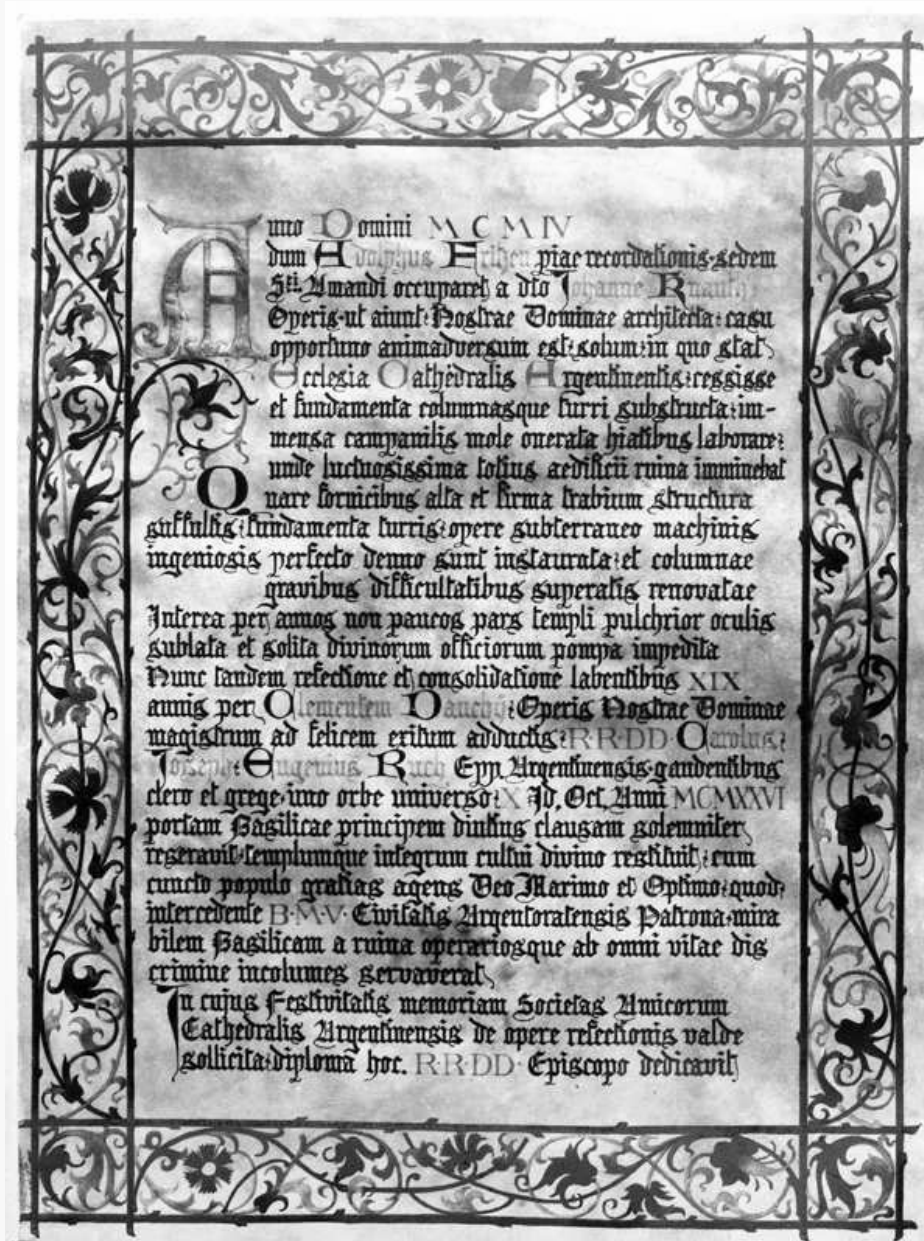 Anno Domini MCMIV
dum Adolphus Fritzen piae recordationis·sedem
Sti. Amandi occuparet a dto Johanne Knauth
Operis·ut aiunt·Nostrae Dominae architecta·casu
opportuno animadversum est·solum·in quo stat
Ecclesia Cathedralis Argentinensis·cessisse
et fundamenta columnasque turri substructa·im-
mensa campanilis mole onerata hiatibus laborare·
unde luctuosissima totius aedificii ruina imminebat
Quare fornicibus alta et firma trabium structura
suffultis·fundamenta turris·opere subterraneo machinis
ingeniosis perfecto denuo sunt instaurata·et columnae
gravibus difficultatibus superatis renovatae
Interea per annos non paucos pars templi pulchrior oculis
sublata et solita divinorum officiorum pompa impedita
Nunc tandem refectione et consolidatione labentibus XIX
annis per Clementem Dauchy·Operis Nostrae Dominae
magistrum ad felicem exitum adductis·R·R·DD·Carolus·
Joseph·Eugenius Ruch Epp. Argentinensis·gaudentibus
clero et grege·imo orbe universo·X Id. Oct. Anni MCMXXVI
portam Basilicae principem diutius clausam solemniter
reseravit·templumque integrum cultui divino restituit·cum
cuncto populo gratias agens Deo Maximo et Optimo·quod·
intercedente B·M·V·Civitatis Argentoratensis Patrona·mira
bilem Basilicam a ruina operariosque ab omni vitae dis
crimine incolumes servaverat
In cujus Festivitatis memoriam Societas Amicorum
Cathedralis Argentinensis de opere refectionis valde
sollicita·diploma hoc. R·R·DD·Episcopo dedicavit